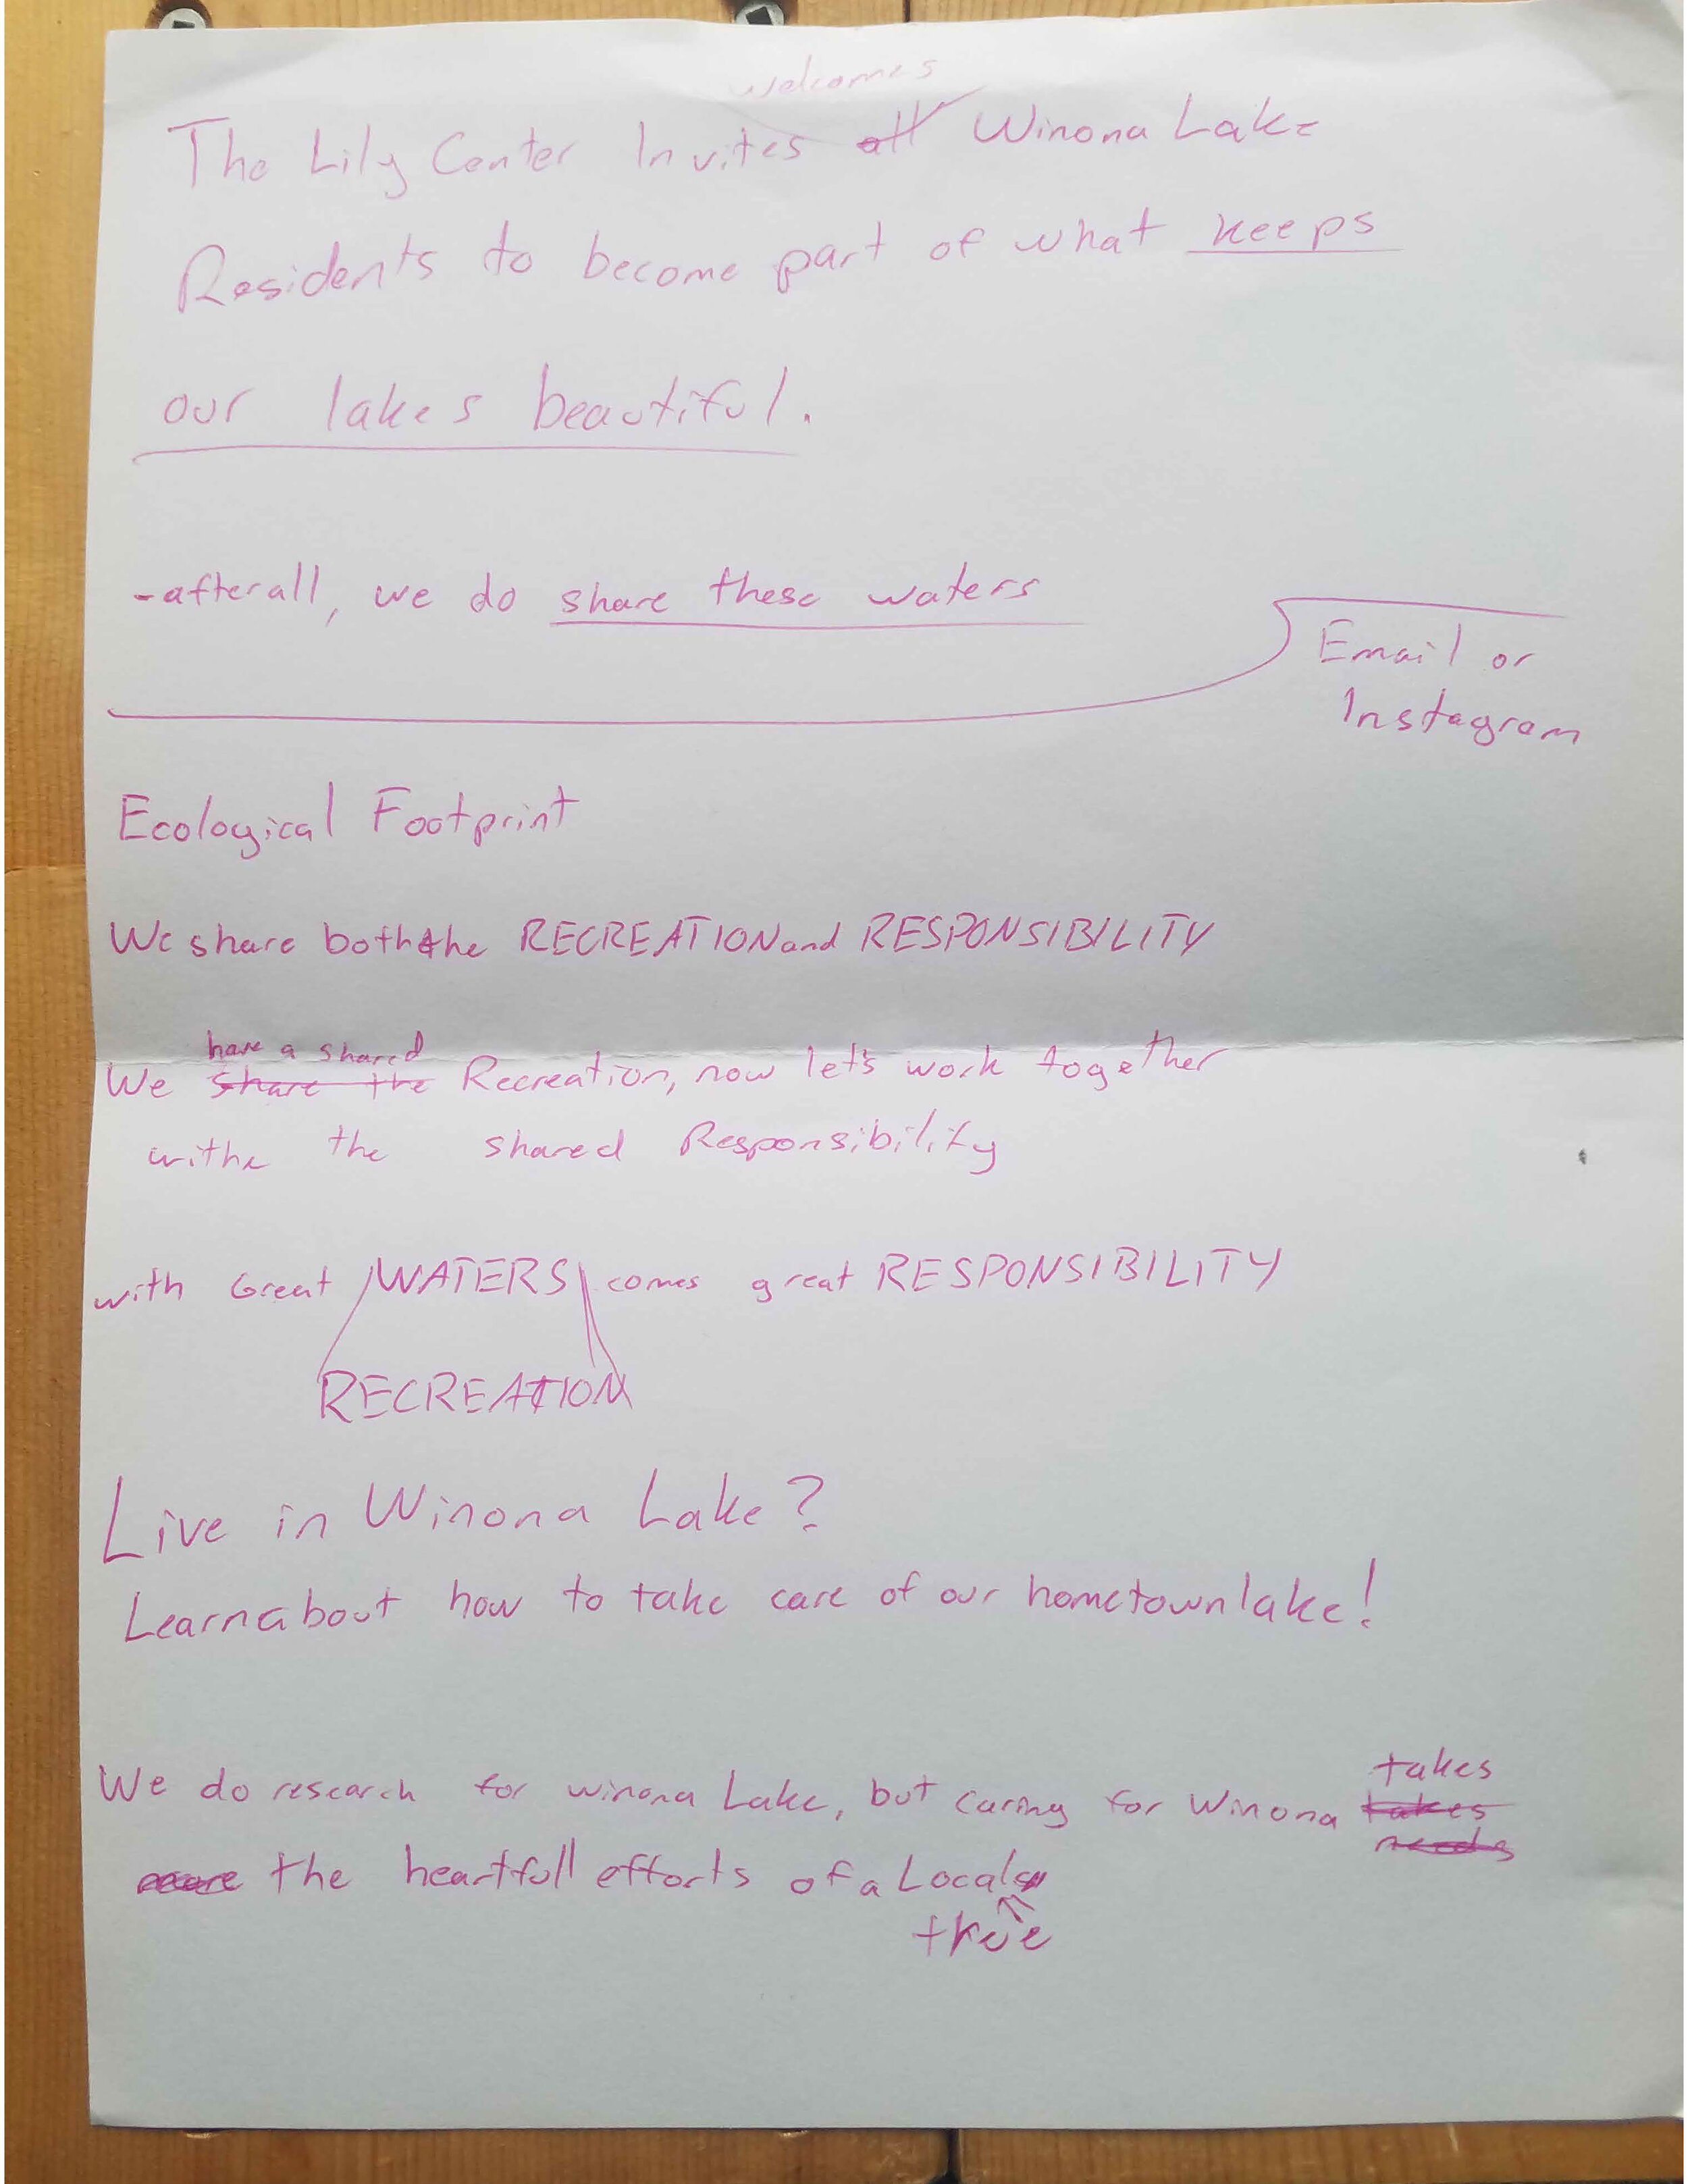 welcomes
The Lily Center Invites all Winona Lake
Residents to become part of what keeps
our lakes beautiful.
-afterall, we do share these waters
Email or
Instagram
Ecological Footprint
We share both the RECREATION and RESPONSIBILITY
have a shared
We share the Recreation, now let's work together
withe the shared Responsibility
with Great WATERS comes great RESPONSIBILITY
RECREATION
Live in Winona Lake?
Learn about how to take care of our hometown lake!
takes
We do research for winona Lake, but caring for Winona takes
needs
the heartfull efforts of a Locals
true